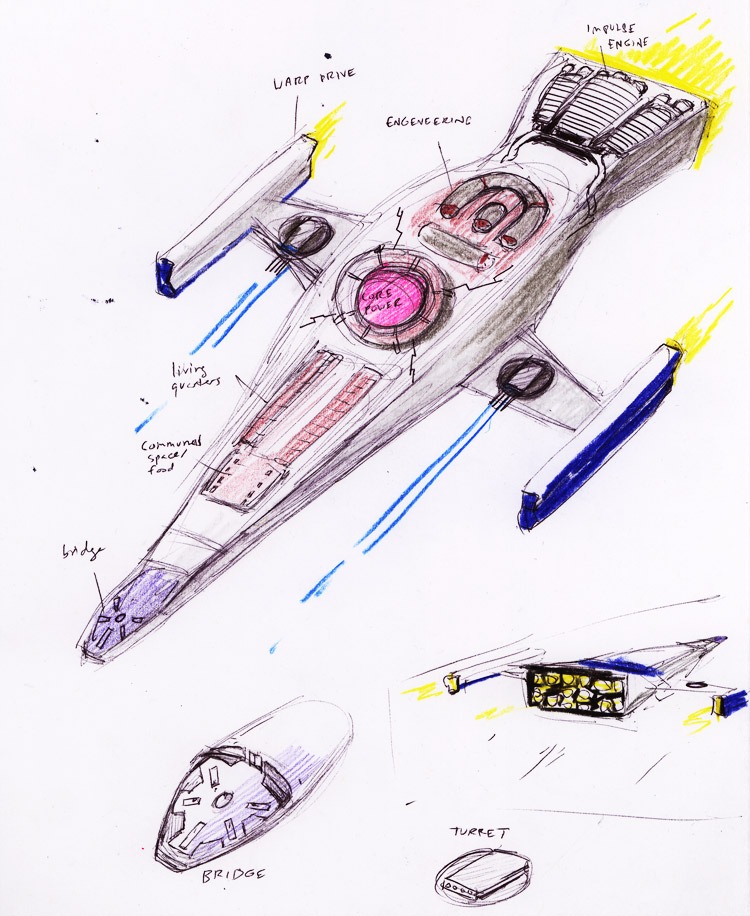 IMPULSE
ENGINE
WARP DRIVE
ENGENEERING
CORE
POWER
living
quarters
Communal
space/
food
bridge
BRIDGE
TURRET